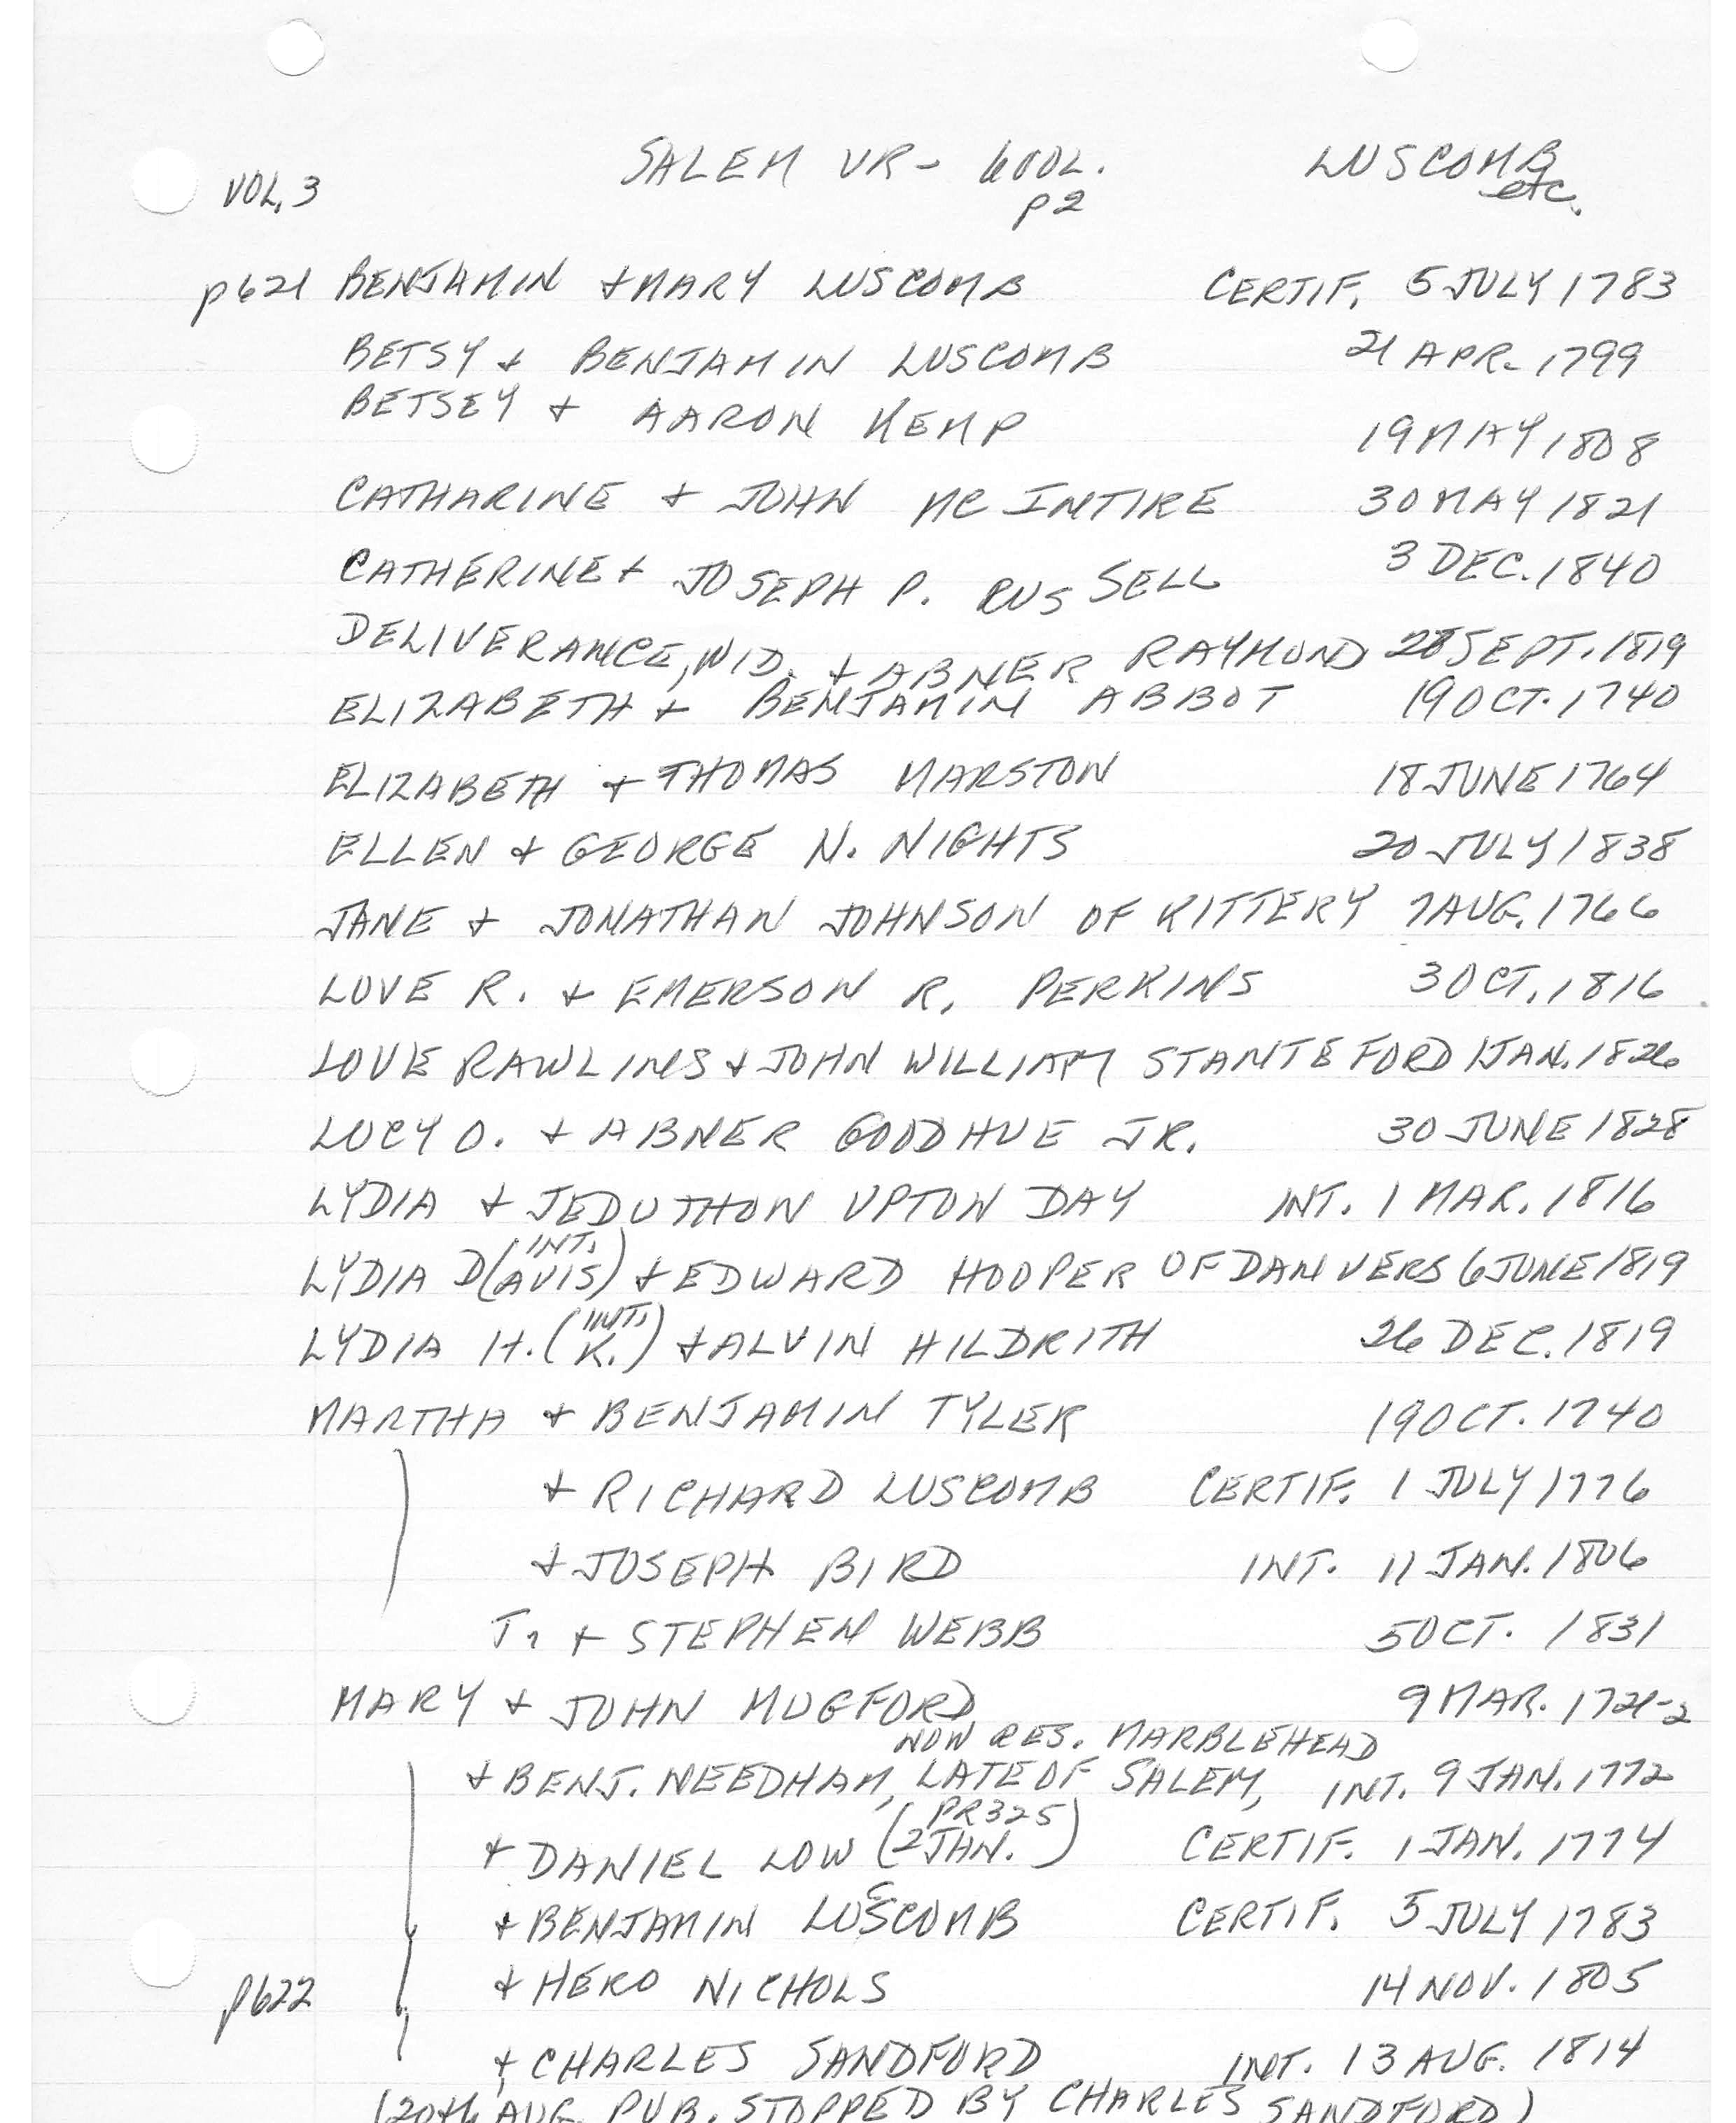 SALEM VR - 600L. LUSCOMB
VOL. 3 p2 etc.
p621 BENJAMIN + MARY LUSCOMB CERTIF. 5 JULY 1783
BETSY + BENJAMIN LUSCOMB 21 APR. 1799
BETSEY + AARON KEMP 19 MAY 1808
CATHARINE + JOHN MC INTIRE 30 MAY 1821
CATHERINE + JOSEPH P. RUSSELL 3 DEC. 1840
DELIVERANCE, WID. + ABNER RAYMOND 28 SEPT. 1819
ELIZABETH + BENJAMIN ABBOT 19 OCT. 1740
ELIZABETH + THOMAS MARSTON 18 JUNE 1764
ELLEN + GEORGE N. NIGHTS 20 JULY 1838
JANE + JONATHAN JOHNSON OF KITTERY 7 AUG. 1766
LOVE R. + EMERSON R. PERKINS 3 OCT. 1816
LOVE RAWLINS + JOHN WILLIAM STANTEFORD 1 JAN. 1826
LUCY O. + ABNER GOODHUE JR. 30 JUNE 1828
LYDIA + JEDUTHON UPTON DAY INT. 1 MAR. 1816
(INT.)
LYDIA D(AVIS) + EDWARD HOOPER OF DANVERS 6 JUNE 1819
(INT.)
LYDIA H. (K.) + ALVIN HILDRITH 26 DEC. 1819
MARTHA + BENJAMIN TYLER 19 OCT. 1740
+ RICHARD LUSCOMB CERTIF. 1 JULY 1776
+ JOSEPH BIRD INT. 11 JAN. 1806
T. + STEPHEN WEBB 5 OCT. 1831
MARY + JOHN MUGFORD 9 MAR. 1721-2
NOW RES. MARBLEHEAD
+ BENJ. NEEDHAM, LATE OF SALEM, INT. 9 JAN. 1772
(PR325
+ DANIEL LOW 2 JAN.) CERTIF. 1 JAN. 1774
+ BENJAMIN LUSCOMB CERTIF. 5 JULY 1783
p622 + HERO NICHOLS 14 NOV. 1805
+ CHARLES SANDFORD INT. 13 AUG. 1814
(20th AUG. PUB. STOPPED BY CHARLES SANDFORD)